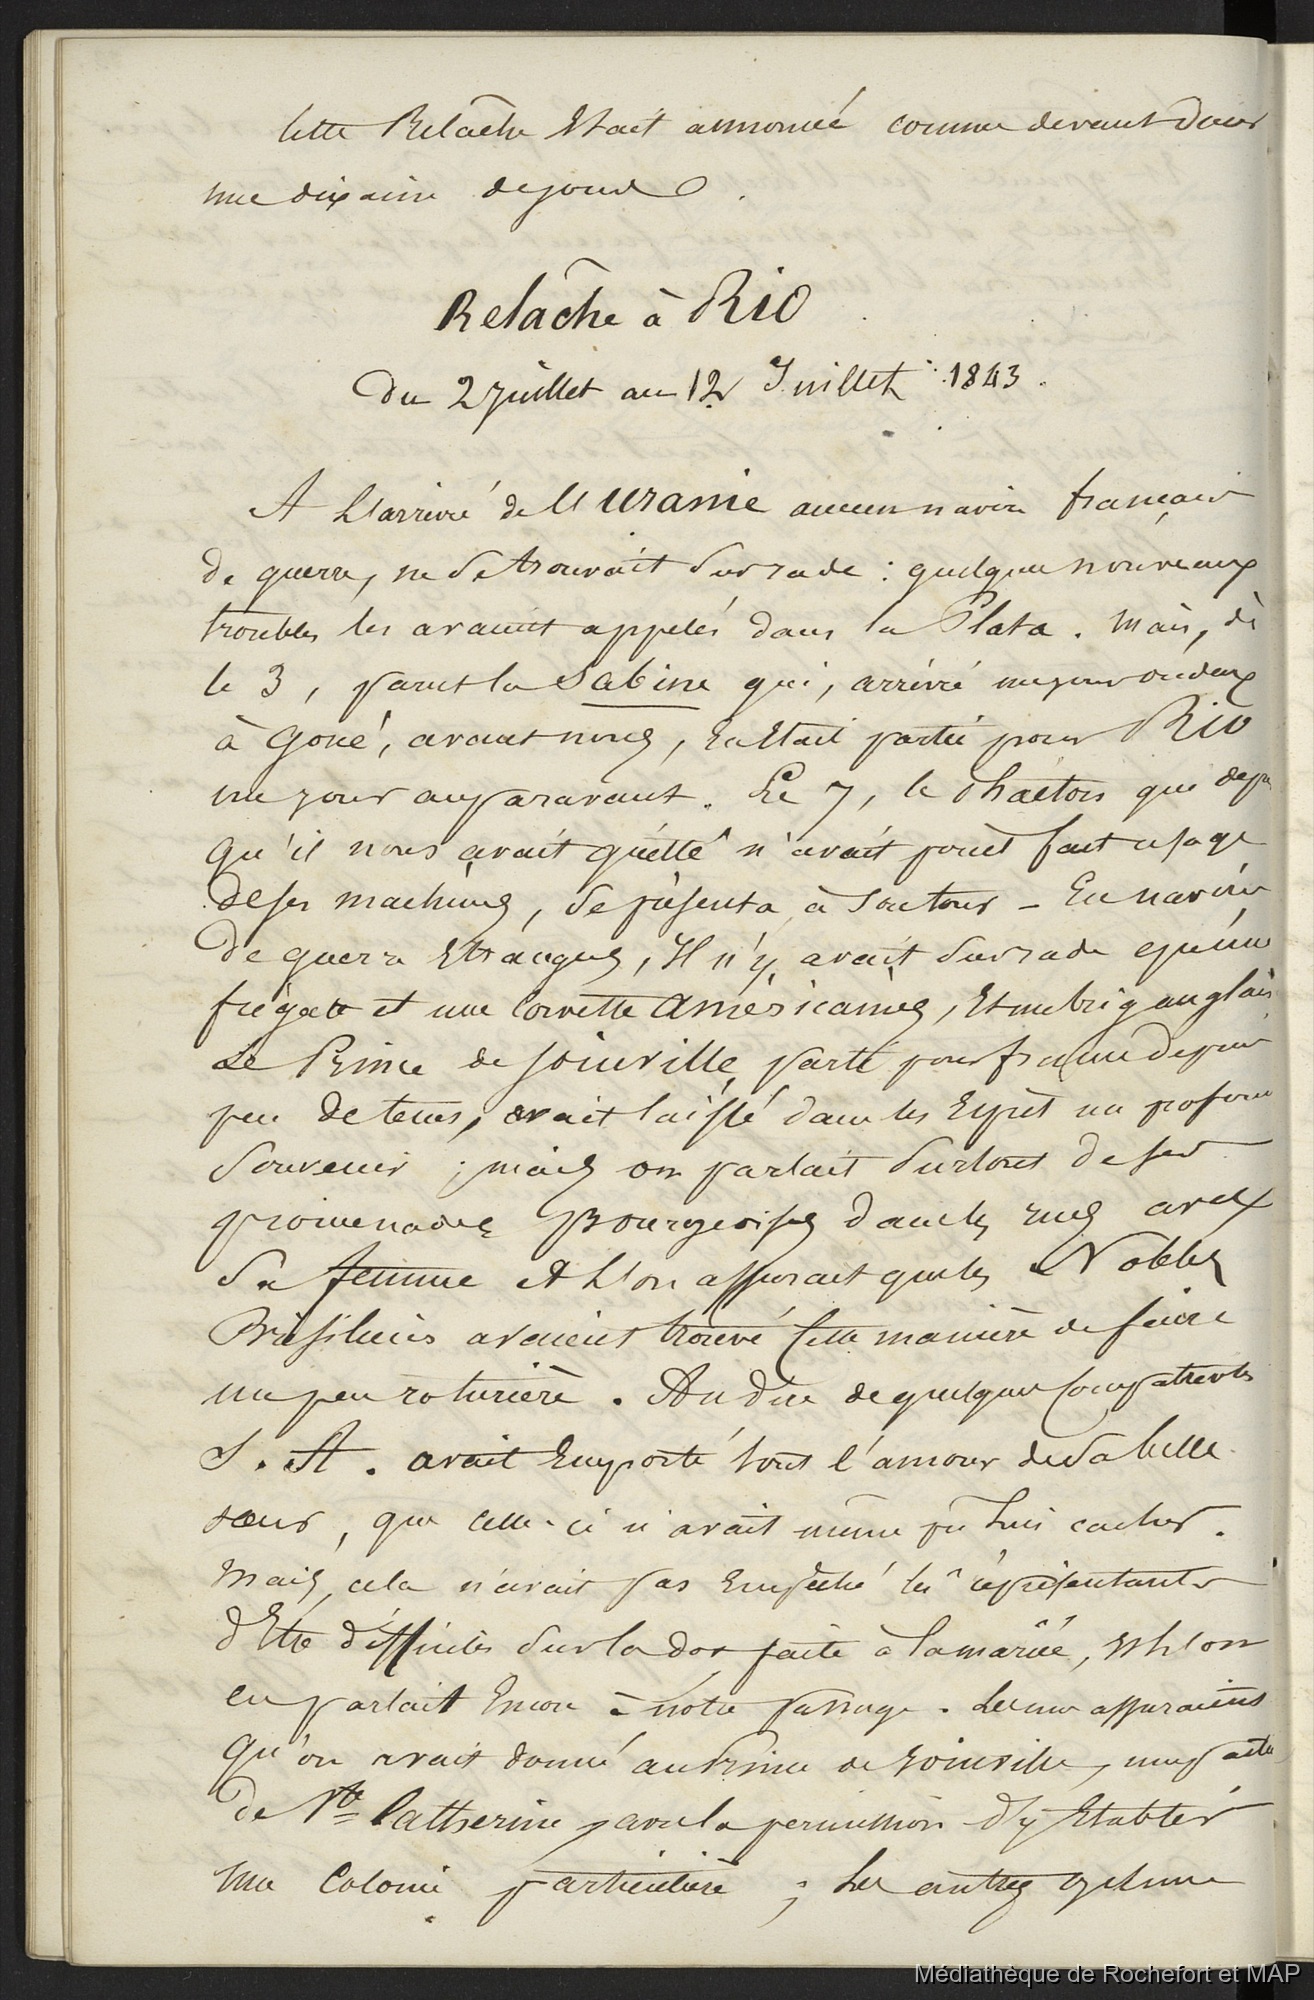 Cette Relâche Etait annoncée comme devant durer
une dixaine de jours.
Relâche à Rio
Du 2 juillet au 12 Juillet 1843.
A L'arrivée de L'Uranie aucun navire français
de guerre, ne se trouvait sur rade : quelques nouveaux
troubles les avaient appelés dans la Plata. Mais, dès
le 3, parut la Sabine qui, arrivée un jour ou deux
à Goré, avant nous, en Etait partie pour Rio
un jour auparavant. Le 7, le Phaéton qui depuis
qu'il nous avait quitté n'avait point fait usage
de ses machines, se présenta à son tour - En navires
de guerre Etrangers, Il n'y avait sur rade qu'une
frégate et une Corvette Américaines, Et un brig anglais
Le Prince de Joinville, parti pour france depuis
peu de tems, avait laissé dans les Esprits un profond
Souvenir ; mais on parlait surtout de ses
promenades Bourgeoises dans les rues avec
Sa femme et L'on assurait que les Nobles
Brésiliens avaient trouvé cette manière de faire
un peu roturière. Au dire de quelques Compatriotes
S. A. avait Emporté tout l'amour de sa belle
sœur, que celle-ci n'avait même pu lui cacher.
Mais, cela n'avait pas Empêché les représentants
d'Etre difficiles sur la dot faite à la mariée, Et L'on
en parlait Encore à notre passage. Les uns assuraient
qu'on avait donné au Prince de Joinville, une partie
de Ste Catherine, avec la permission d'y Etablir
une Colonie particulière ; Les autres qu'une
Médiathèque de Rochefort et MAP